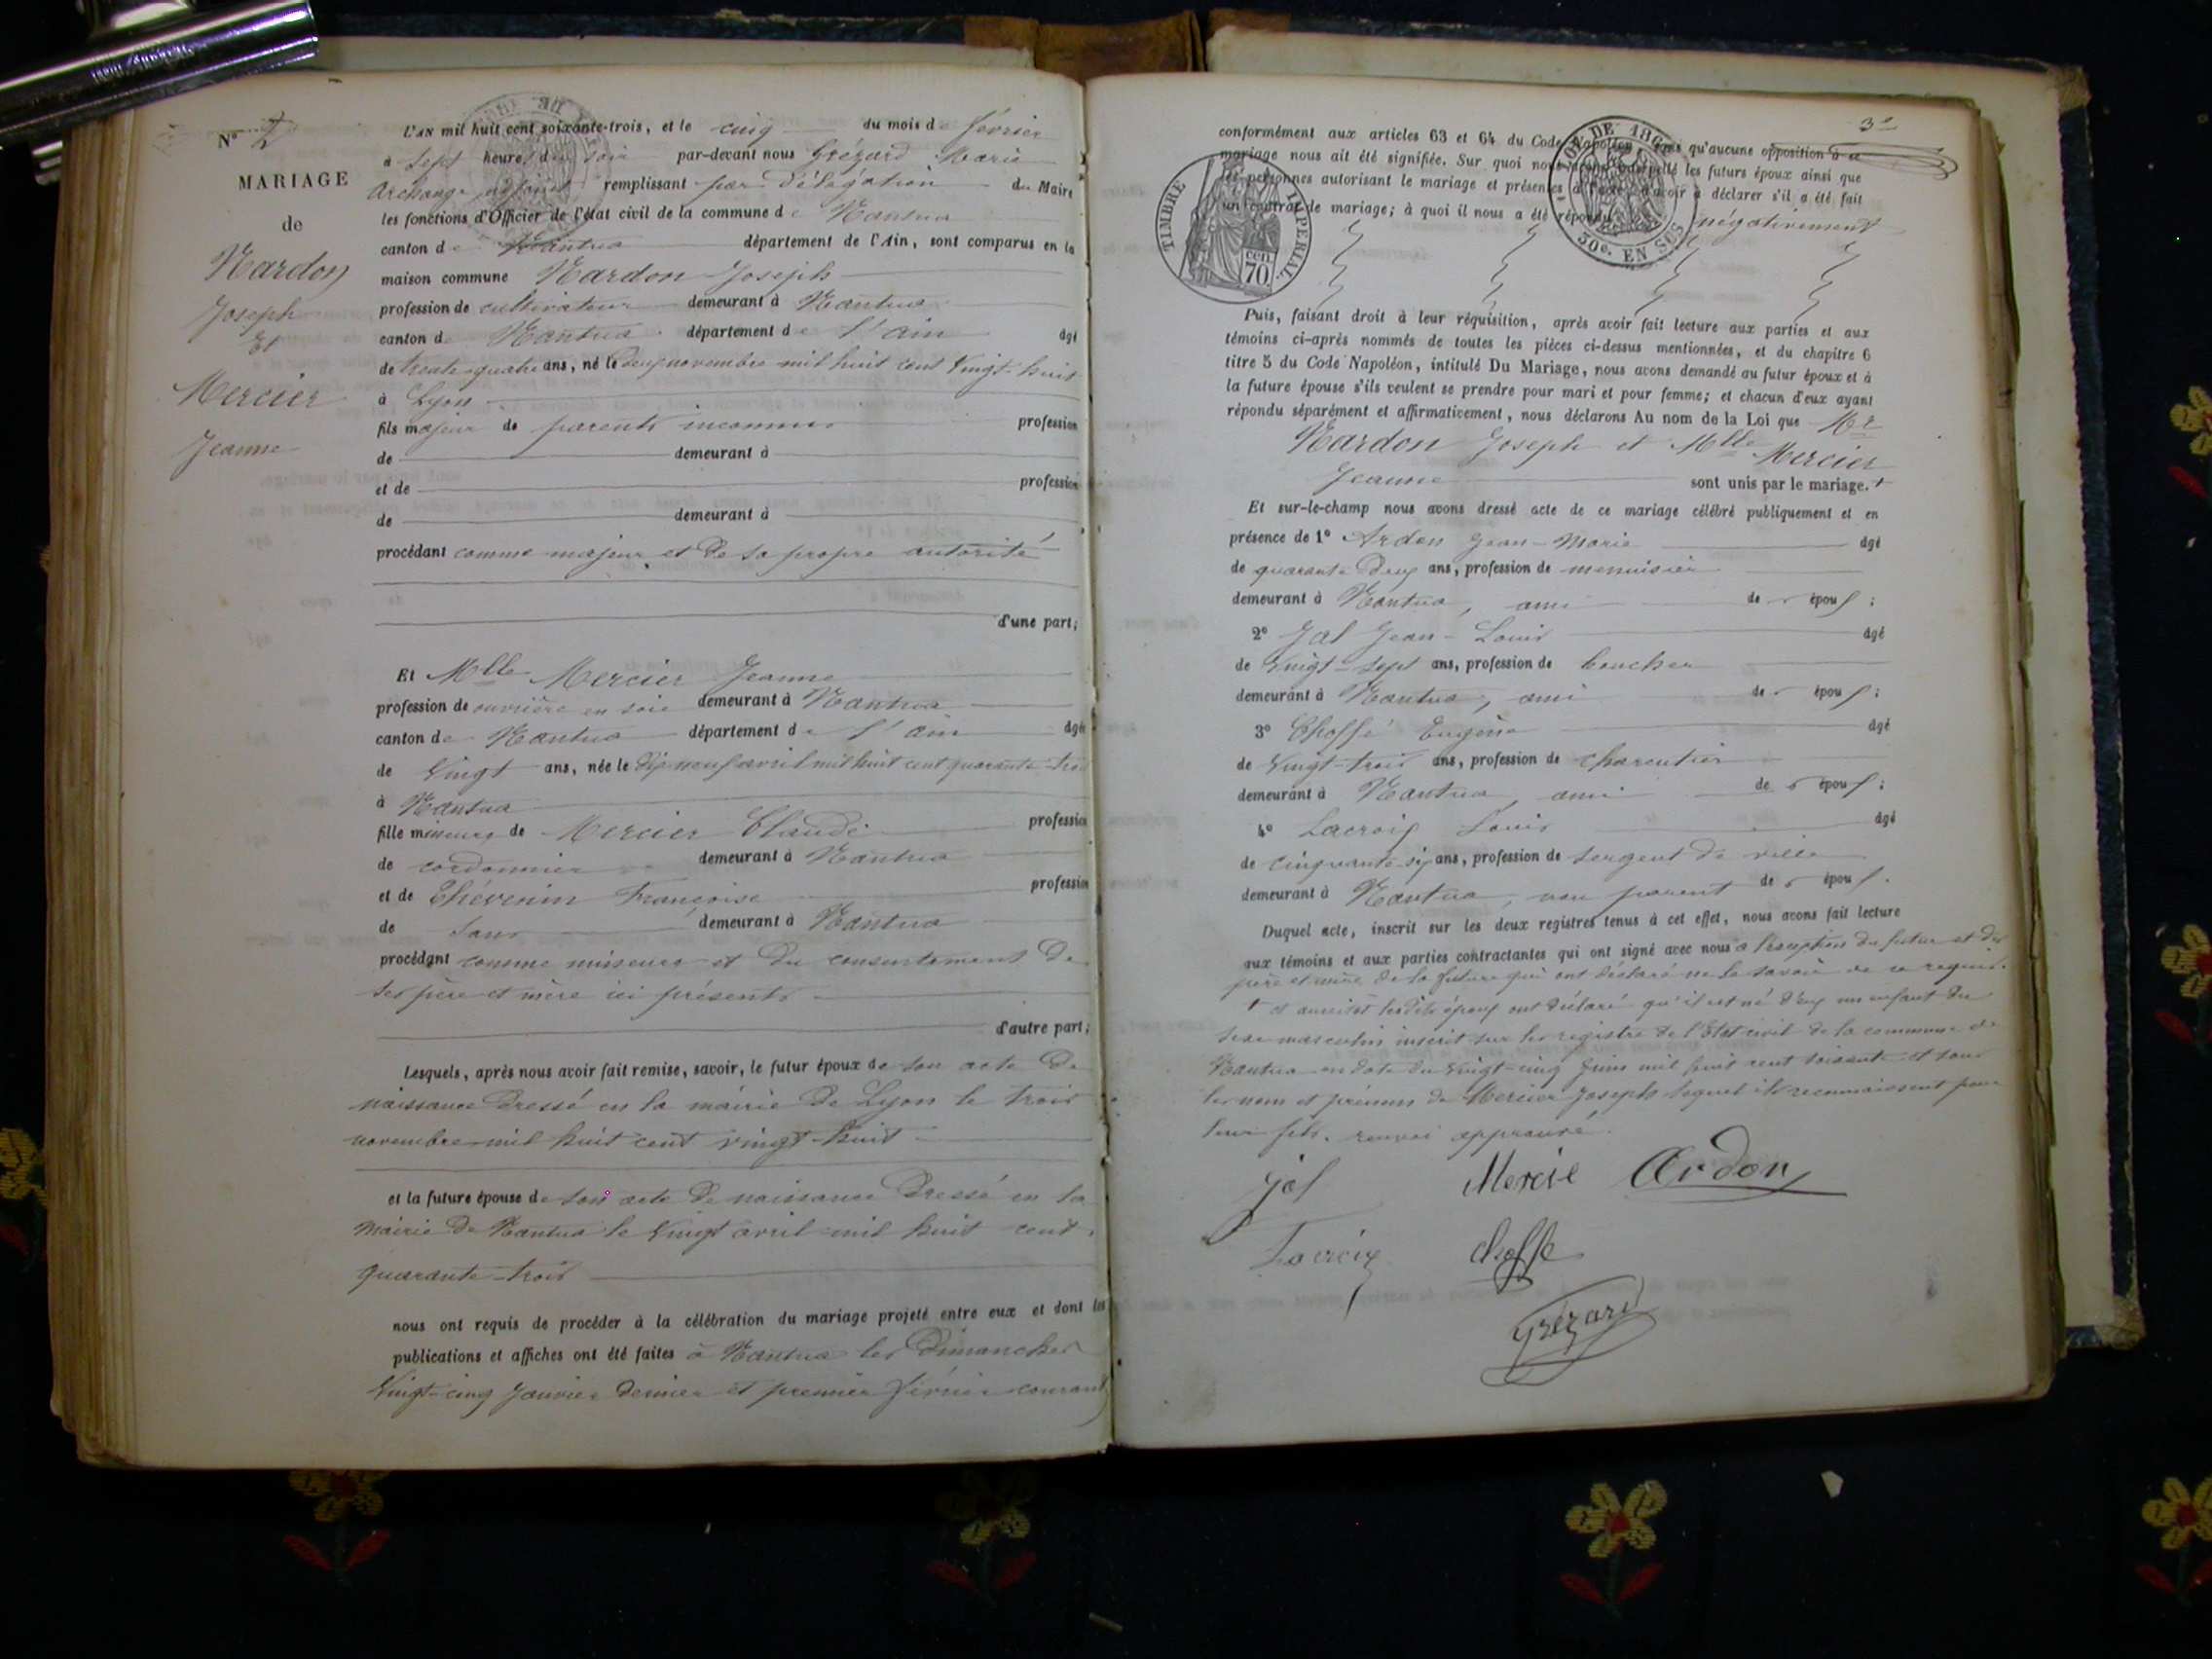 N° 2
MARIAGE
de
Nardon
Joseph
Et
Mercier
Jeanne
L'AN mil huit cent soixante-trois, et le cinq du mois de février
à sept heures du soir par-devant nous Grézard Marie
Archange adjoint remplissant par délégation du Maire
les fonctions d'Officier de l'état civil de la commune de Nantua
canton de Nantua département de l'Ain, sont comparus en la
maison commune Nardon Joseph
profession de cultivateur demeurant à Nantua
canton de Nantua département de l'ain âgé
de trente-quatre ans, né le deux novembre mil huit cent vingt-huit
à Lyon
fils majeur de parents inconnus profession
de demeurant à
et de profession
de demeurant à
procédant comme majeur et de sa propre autorité
d'une part;
Et Mlle Mercier Jeanne
profession de ouvrière en soie demeurant à Nantua
canton de Nantua département de l'ain âgée
de vingt ans, née le dix neuf avril mil huit cent quarante-trois
à Nantua
fille mineure de Mercier Claude profession
de cordonnier demeurant à Nantua
et de Thévenin Françoise profession
de sans demeurant à Nantua
procédant comme mineure et du consentement de
ses père et mère ici présents
d'autre part;
Lesquels, après nous avoir fait remise, savoir, le futur époux de son acte de
naissance dressé en la mairie de Lyon le trois
novembre mil huit cent vingt-huit
et la future épouse de son acte de naissance dressé en la
mairie de Nantua le vingt avril mil huit cent
quarante-trois
nous ont requis de procéder à la célébration du mariage projeté entre eux et dont les
publications et affiches ont été faites à Nantua les dimanches
vingt-cinq janvier dernier et premier février courant
conformément aux articles 63 et 64 du Code Napoléon, sans qu'aucune opposition à ce
mariage nous ait été signifiée. Sur quoi nous avons interpellé les futurs époux ainsi que
les personnes autorisant le mariage et présentes à l'acte, d'avoir à déclarer s'il a été fait
un contrat de mariage; à quoi il nous a été répondu négativement
TIMBRE IMPERIAL
cen. 70
LOI DE 1862
30e. EN SUS
Puis, faisant droit à leur réquisition, après avoir fait lecture aux parties et aux
témoins ci-après nommés de toutes les pièces ci-dessus mentionnées, et du chapitre 6
titre 5 du Code Napoléon, intitulé Du Mariage, nous avons demandé au futur époux et à
la future épouse s'ils veulent se prendre pour mari et pour femme; et chacun d'eux ayant
répondu séparément et affirmativement, nous déclarons Au nom de la Loi que Mr
Nardon Joseph et Mlle Mercier
Jeanne sont unis par le mariage. +
Et sur-le-champ nous avons dressé acte de ce mariage célébré publiquement et en
présence de 1° Ardon Jean-Marie âgé
de quarante deux ans, profession de menuisier
demeurant à Nantua, ami des époux;
2° Jal Jean-Louis âgé
de vingt-sept ans, profession de boucher
demeurant à Nantua, ami des époux;
3° Choffé Eugène âgé
de vingt-trois ans, profession de charcutier
demeurant à Nantua, ami des époux;
4° Lacroix Louis âgé
de cinquante six ans, profession de sergent de ville
demeurant à Nantua, non parent des époux.
Duquel acte, inscrit sur les deux registres tenus à cet effet, nous avons fait lecture
aux témoins et aux parties contractantes qui ont signé avec nous à l'exception du futur et des
père et mère de la future qui ont déclaré ne le savoir de ce requis.
+ et aussitôt lesdits époux ont déclaré qu'il est né d'eux un enfant du
sexe masculin inscrit sur les registre de l'Etat civil de la commune de
Nantua en date du vingt-cinq juin mil huit cent soixante et sous
les nom et prénom de Mercier Joseph lequel ils reconnaissent pour
leur fils. renvoi approuvé.
jal Mercie Ardon
Lacroix choffe
Grézard